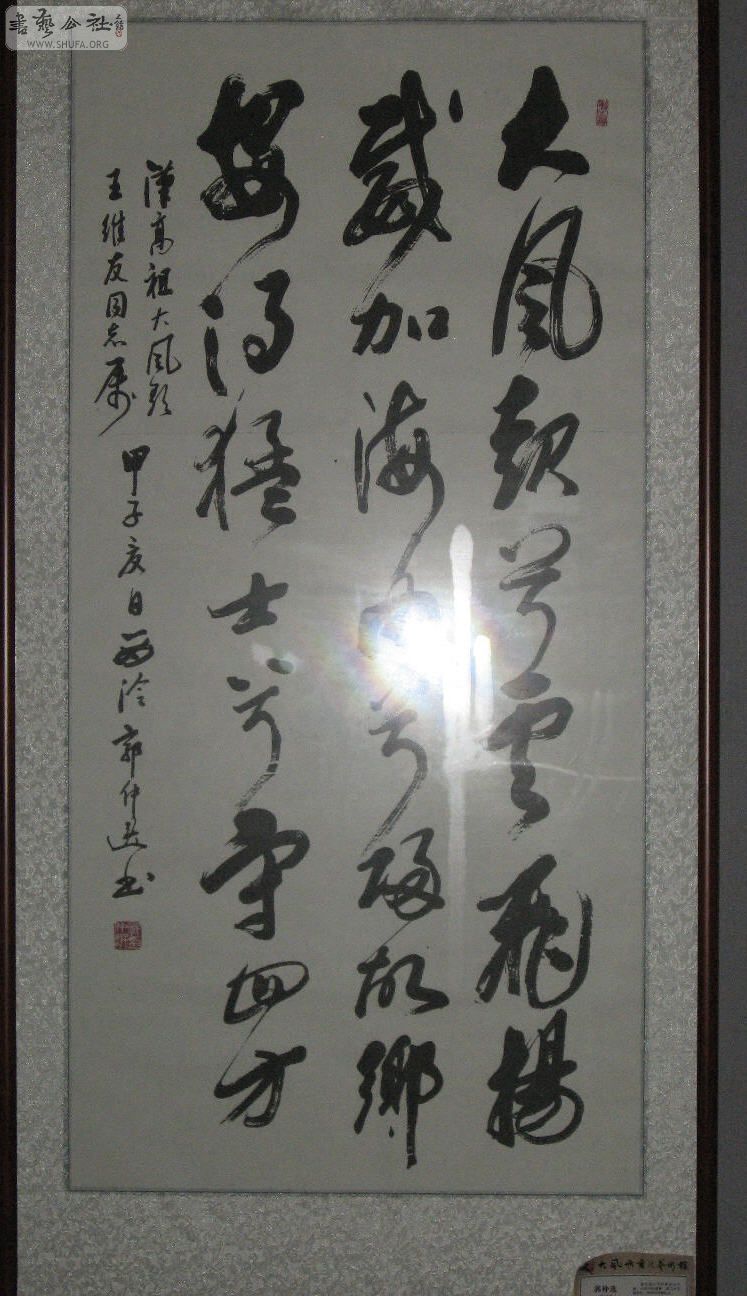 書藝公社
WWW.SHUFA.ORG
大風起兮雲飛揚
威加海内兮歸故鄉
安得猛士兮守四方
漢高祖大風歌
王維友同志属
甲子夏日西泠郭仲選書
郭仲选